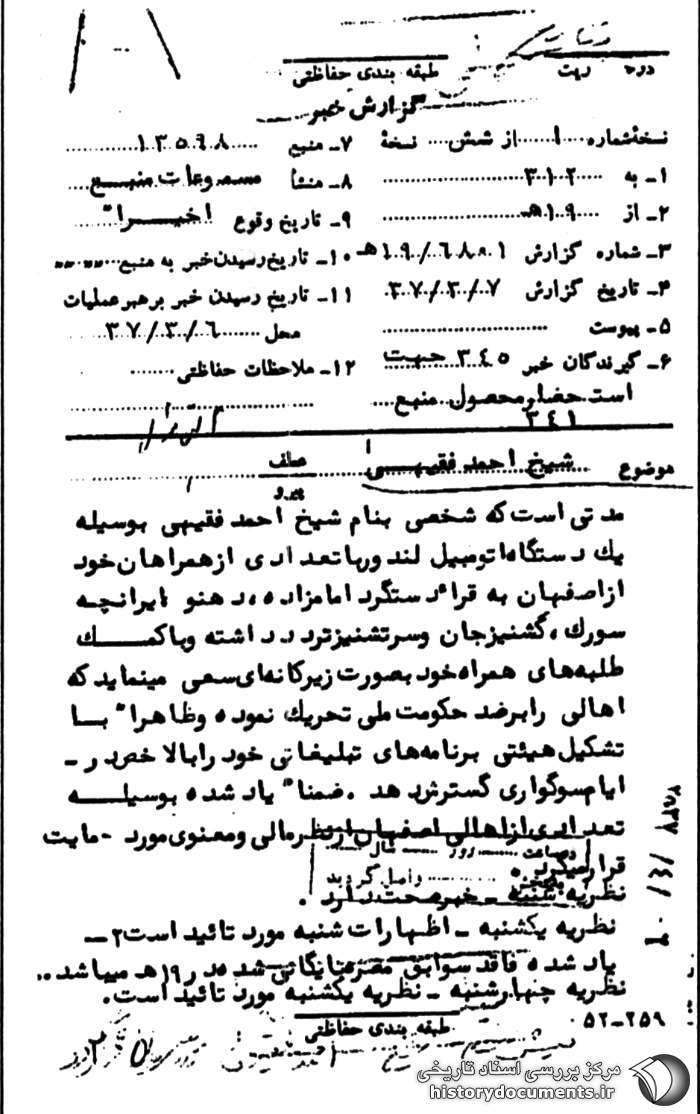 طبقه بندی حفاظتی
گزارش خبر
نسخهٔ شماره ۱ از شش نسخهٔ
۱ـ به ۳۱۲
۲ـ از ۱۹هـ
۳ـ شماره گزارش
۴ـ تاریخ گزارش ۳۷/۳/۷
۵ـ پیوست
۶ـ گیرندگان خبر ۳۴۵ جهت
است‌حضار محصول منبع
۳۴۱
۷ـ منبع ۱۳۵۹۸
۸ـ منشأ مسموعات منبع
۹ـ تاریخ وقوع اخیراً
۱۰ـ تاریخ رسیدن خبر به منبع
۱۱ـ تاریخ رسیدن خبر برهبر عملیات
محل ۳۷/۳/۶
۱۲ـ ملاحظات حفاظتی
موضوع شیخ احمد فقیهی
عطف
پیرو
مدتی است که شخصی بنام شیخ احمد فقیهی بوسیله
یک دستگاه اتومبیل لندور با تعدادی از همراهان خود
از اصفهان به قراء دستگرد امامزاده، دهنو ایرانچه
سورک، گشنیزجان وسرتشنیز تردد داشته وبا کمک
طلبه‌های همراه خود بصورت زیرکانه‌ای سعی مینماید که
اهالی را بر ضد حکومت ملی تحریک نموده وظاهراً با
تشکیل هیئتی برنامه‌های تبلیغاتی خود را بالاخص در ـ
ایام سوگواری گسترش دهد . ضمناً یاد شده بوسیله
تعدادی از اهالی اصفهان از نظر مالی ومعنوی مورد حمایت
قرار میگیرد .
ساعت روز سال
واصل گردید
نظریه شنبه ـ خبر صحت دارد .
نظریه یکشنبه ـ اظهارات شنبه مورد تائید است ۲ـ
یاد شده فاقد سوابق مضره بایگانی شده در ۱۹هـ میباشد .
نظریه چنهارشنبه ـ نظریه یکشنبه مورد تائید است .
۵۲-۲۵۹
طبقه بندی حفاظتی
مرکز بررسی اسناد تاریخی
historydocuments.ir